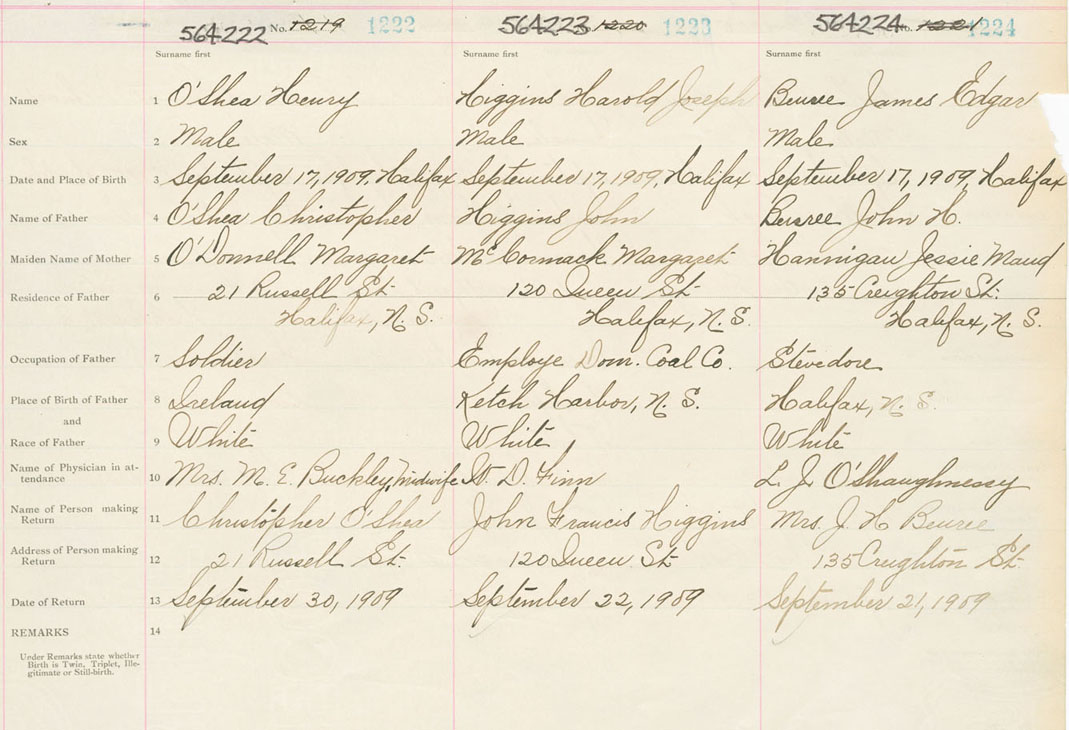 564222 No. 1219 1222 564223 1220 1223 564224 No. 1221 1224
Surname first Surname first Surname first
Name 1 O'Shea Henry Higgins Harold Joseph Beuree James Edgar
Sex 2 Male Male Male
Date and Place of Birth 3 September 17, 1909, Halifax September 17, 1909, Halifax September 17, 1909, Halifax
Name of Father 4 O'Shea Christopher Higgins John Beuree John H.
Maiden Name of Mother 5 O'Donnell Margaret McCormack Margaret Hannigan Jessie Maud
Residence of Father 6 21 Russell St. 120 Queen St. 135 Creighton St.
Halifax, N. S. Halifax, N. S. Halifax, N. S.
Occupation of Father 7 Soldier Employe Dom. Coal Co. Stevedore
Place of Birth of Father 8 Ireland Ketch Harbor, N. S. Halifax, N. S.
and
Race of Father 9 White White White
Name of Physician in at-
tendance 10 Mrs. M. E. Buckley, Midwife W. D. Finn L. J. O'Shaughnessy
Name of Person making
Return 11 Christopher O'Shea John Francis Higgins Mrs. J. H Beuree
Address of Person making
Return 12 21 Russell St. 120 Queen St. 135 Creighton St.
Date of Return 13 September 30, 1909 September 22, 1909 September 21, 1909
REMARKS 14
Under Remarks state whether
Birth is Twin, Triplet, Ille-
gitimate or Still-birth.